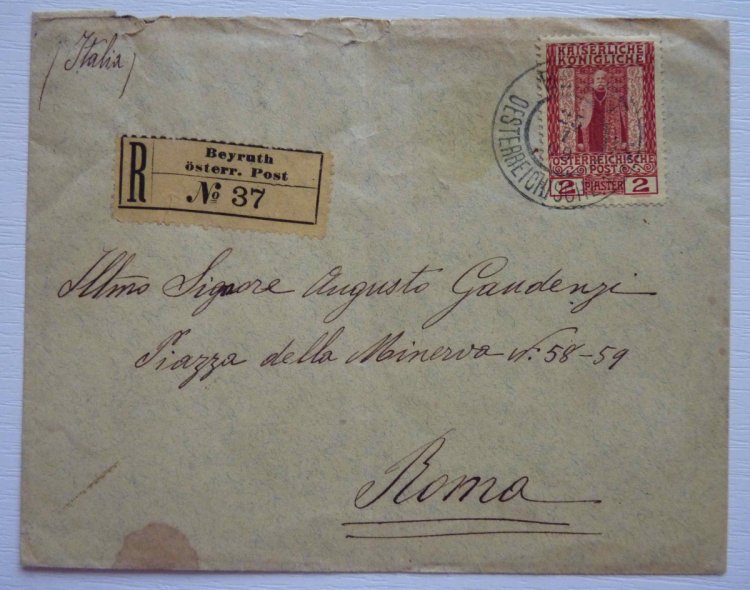 (Italia)
KAISERLICHE
KÖNIGLICHE
ÖSTERREICHISCHE
POST
2 PIASTER 2
OESTERREICH
R
Beyruth
österr. Post
No 37
Illmo Signore Augusto Gaudenzi
Piazza della Minerva N. 58-59
Roma